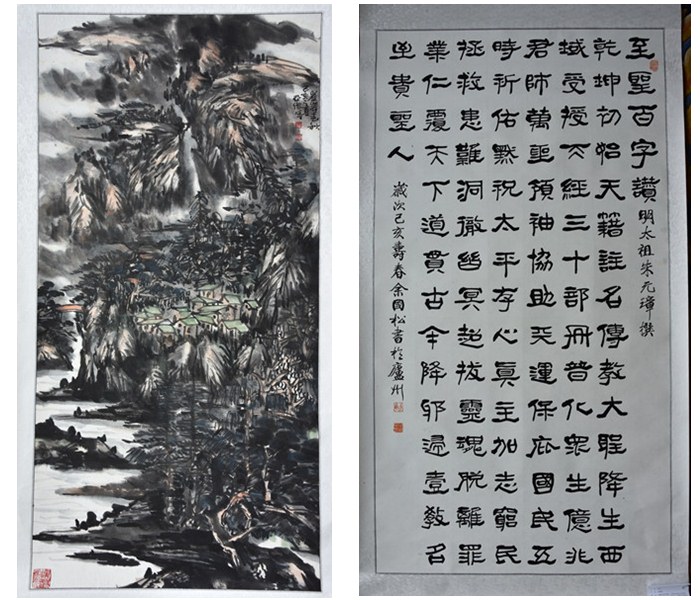 至聖百字讚 明太祖朱元璋撰
乾坤初始天籍註名傳教大聖降生西
域受授天經三十部冊普化眾生億兆
君師萬聖領袖協助天運保庇國民五
時祈佑默祝太平存心真主加志窮民
拯救患難洞徹幽冥超拔靈魂脫離罪
業仁覆天下道貫古今降邪歸壹教名
至貴聖人
歲次己亥壽春余國松書於廬州